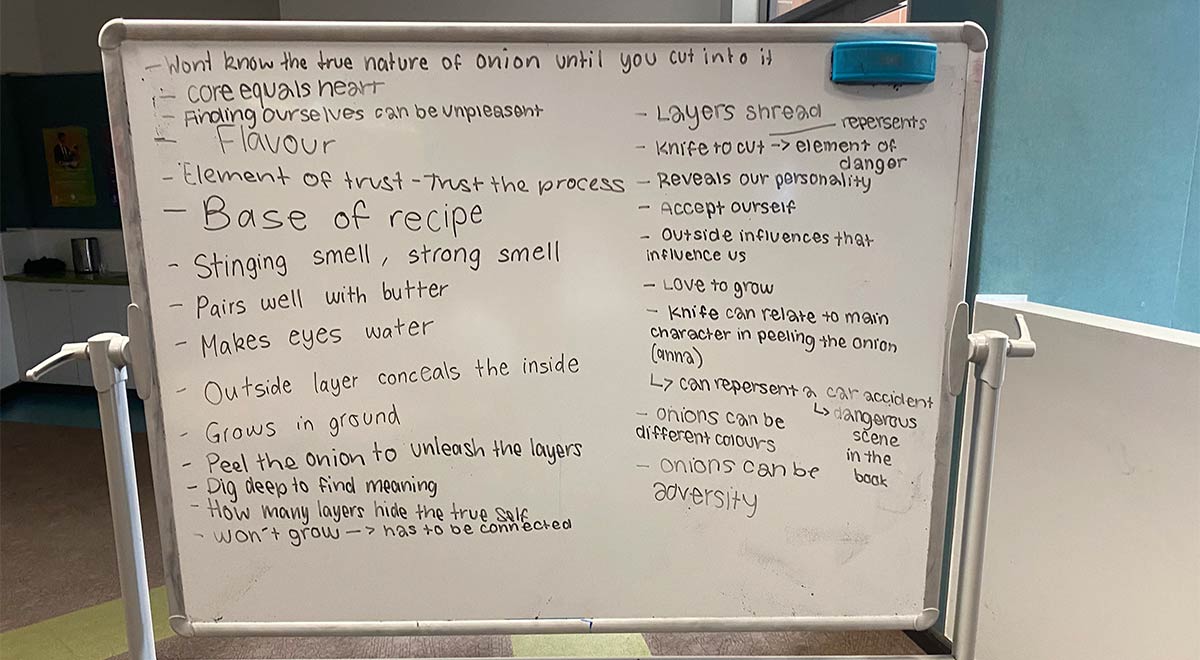 - Wont know the true nature of onion until you cut into it
- core equals heart
- Finding ourselves can be unpleasant
- Flavour
- Element of trust - Trust the process
- Base of recipe
- Stinging smell, strong smell
- Pairs well with butter
- Makes eyes water
- Outside layer conceals the inside
- Grows in ground
- Peel the onion to unleash the layers
- Dig deep to find meaning
- How many layers hide the true self
- won't grow -> has to be connected
- Layers shread
repersents
- Knife to cut -> element of
danger
- Reveals our personality
- Accept ourself
- Outside influences that
influence us
- Love to grow
- Knife can relate to main
character in peeling the onion
(anna)
↳ can repersent a car accident
↳ dangerous
scene
in the
book
- onions can be
different colours
- onions can be
adversity